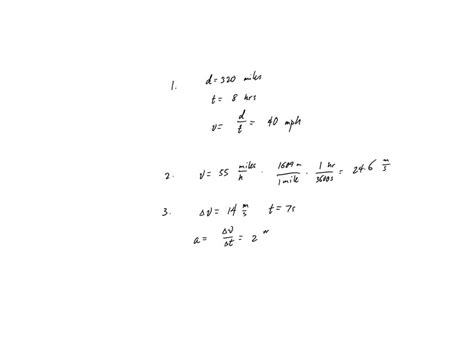 1. d = 320 miles
t = 8 hrs
v = d/t = 40 mph
2. v = 55 miles/h · 1609 m/1 mile · 1 hr/3600s = 24.6 m/s
3. Δv = 14 m/s t = 7s
a = Δv/Δt = 2